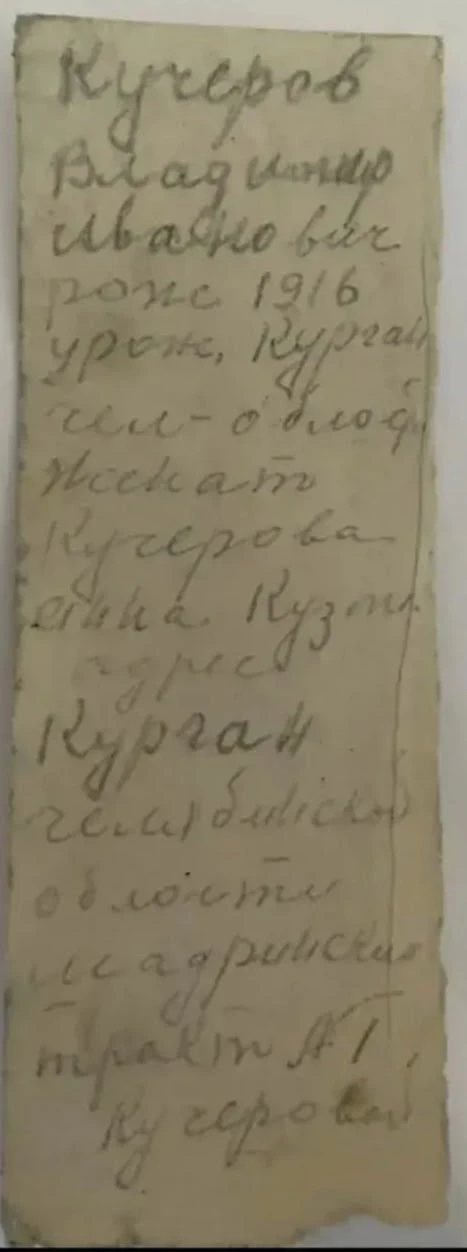 Кучеров
Владимир
Иванович
рожс 1916
урож. Курган
чел-облас
Жекат
Кучерова
Анна Кузми
адрес
Курган
челябинской
области
шадринский
тракт
Кучеровой